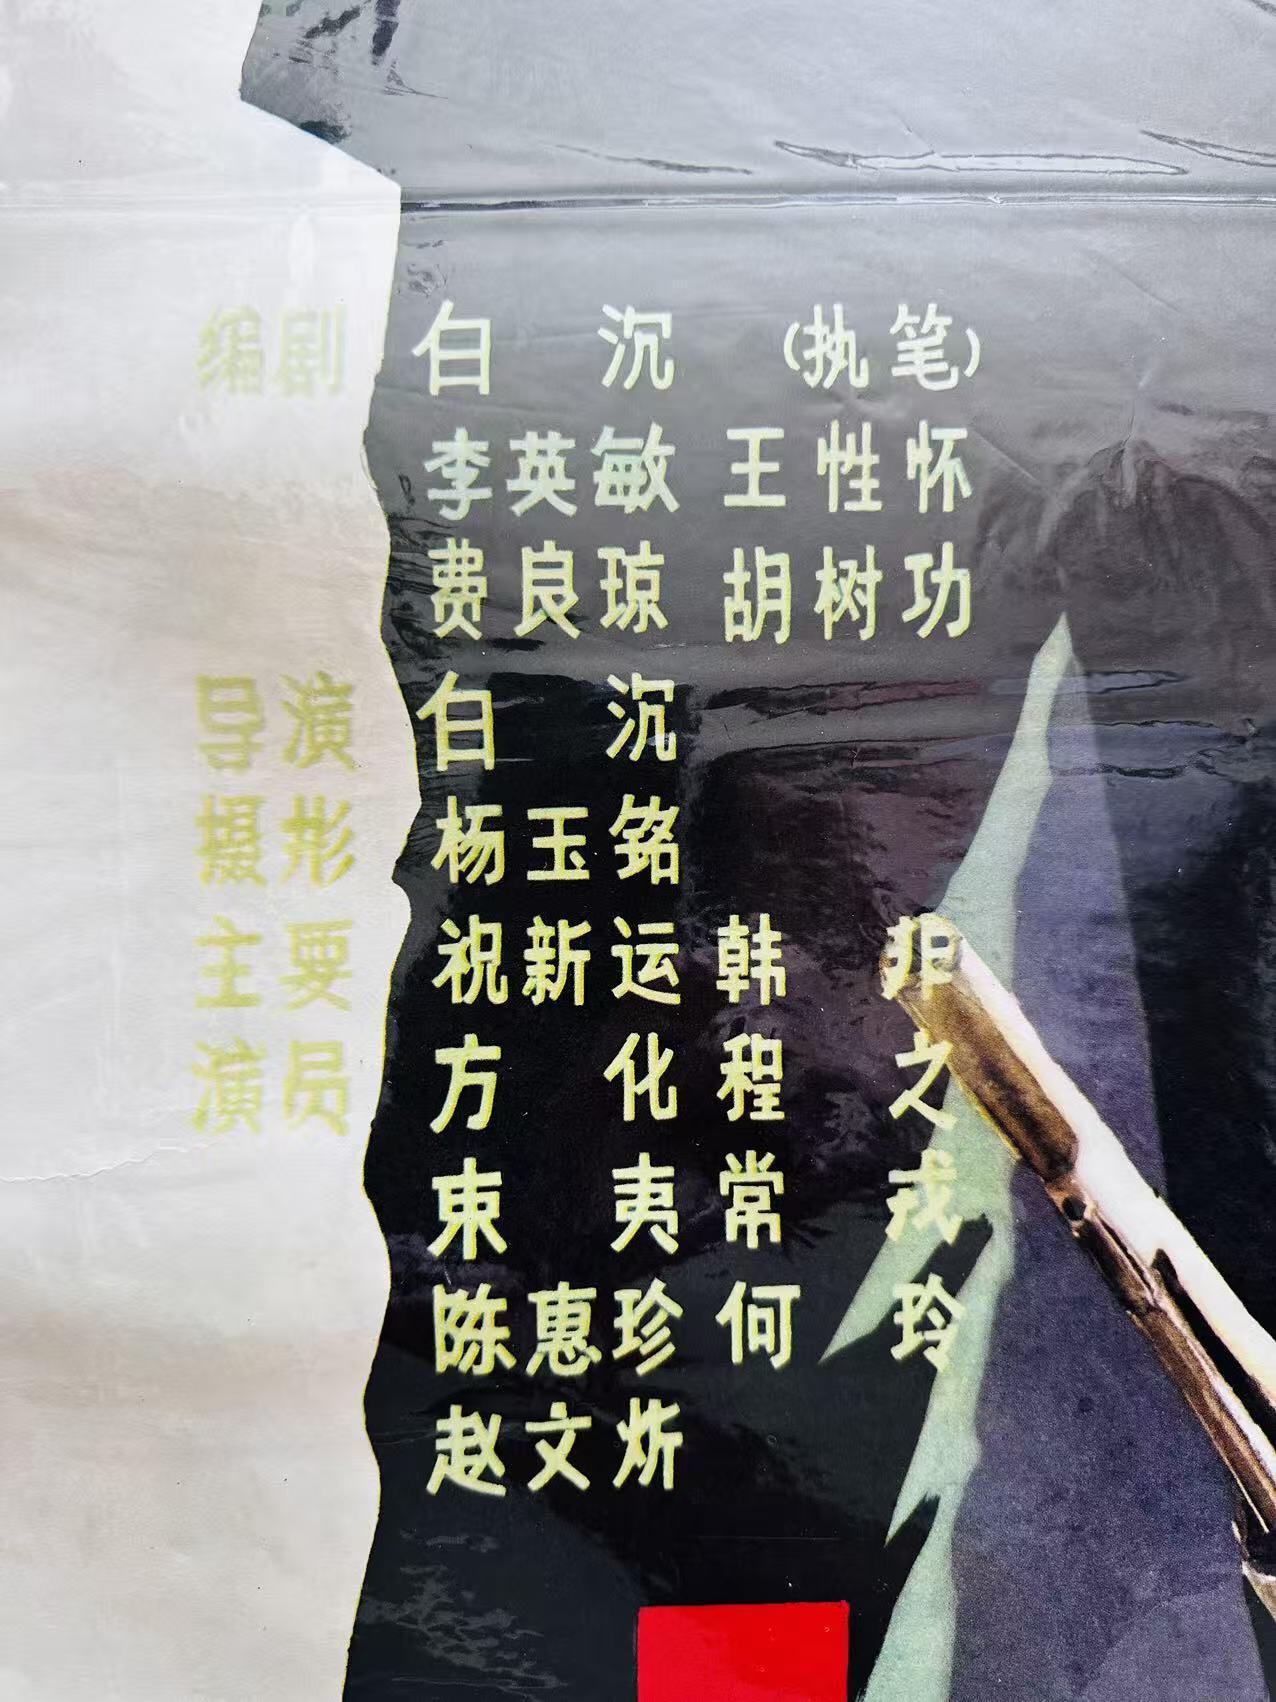 编剧 白沉 (执笔)
李英敏 王性怀
费良琼 胡树功
导演 白沉
摄影 杨玉铭
主要 祝新运 韩非
演员 方化 程之
束夷 常戎
陈惠珍 何玲
赵文炘